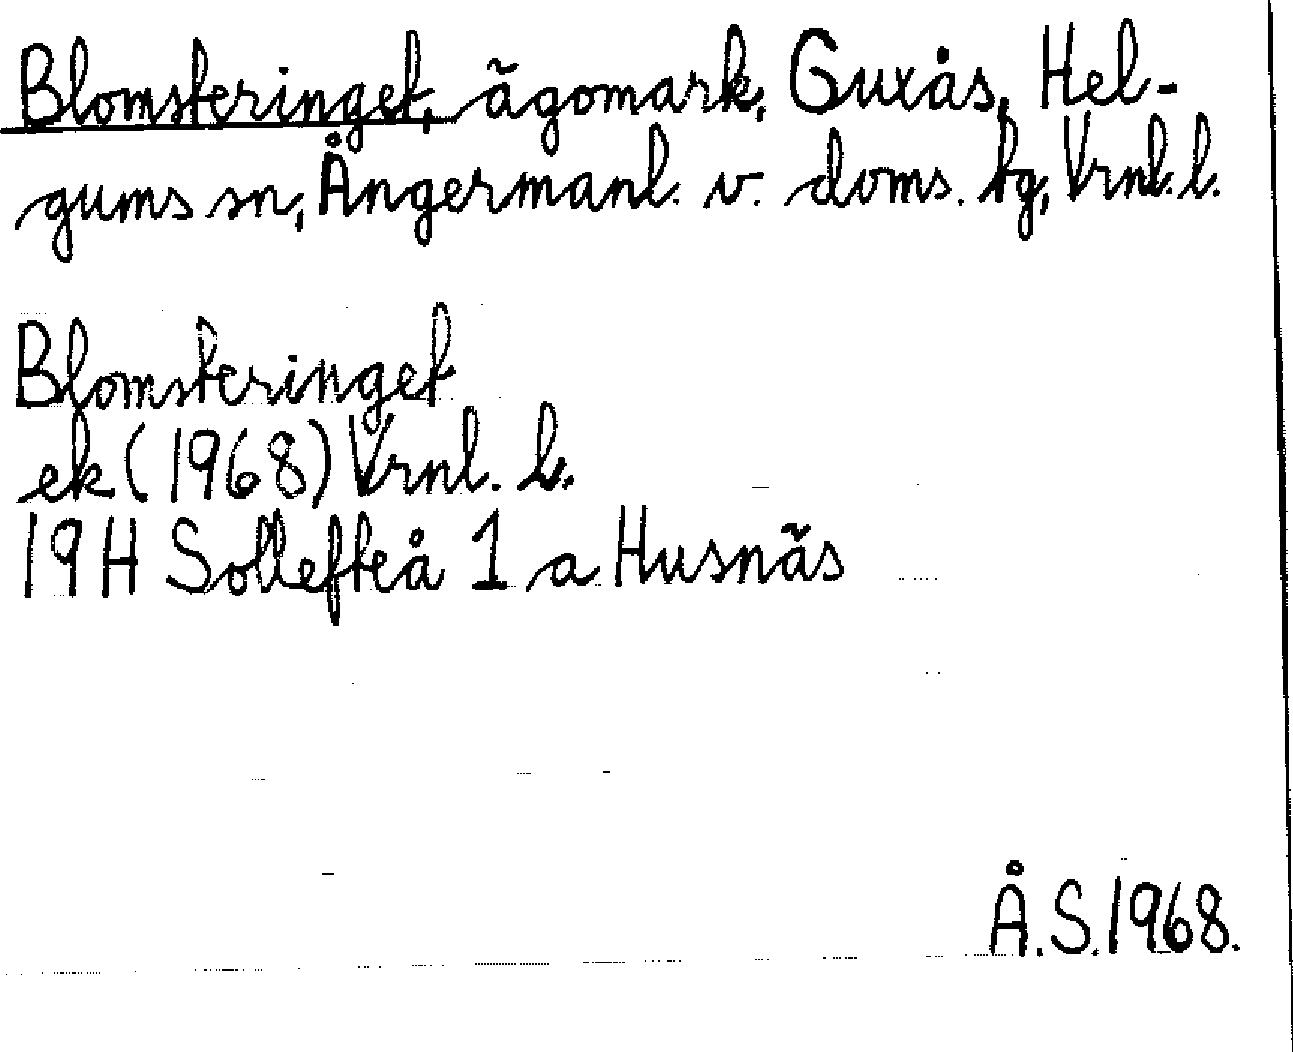 Blomsteringet, ägomark, Guxås, Hel-
gums sn, Ångermanl. v. doms. tg, Vrnl. l.
Blomsteringet
ek (1968) Vrnl. l.
19H Sollefteå 1 a Husnäs
Å.S.1968.